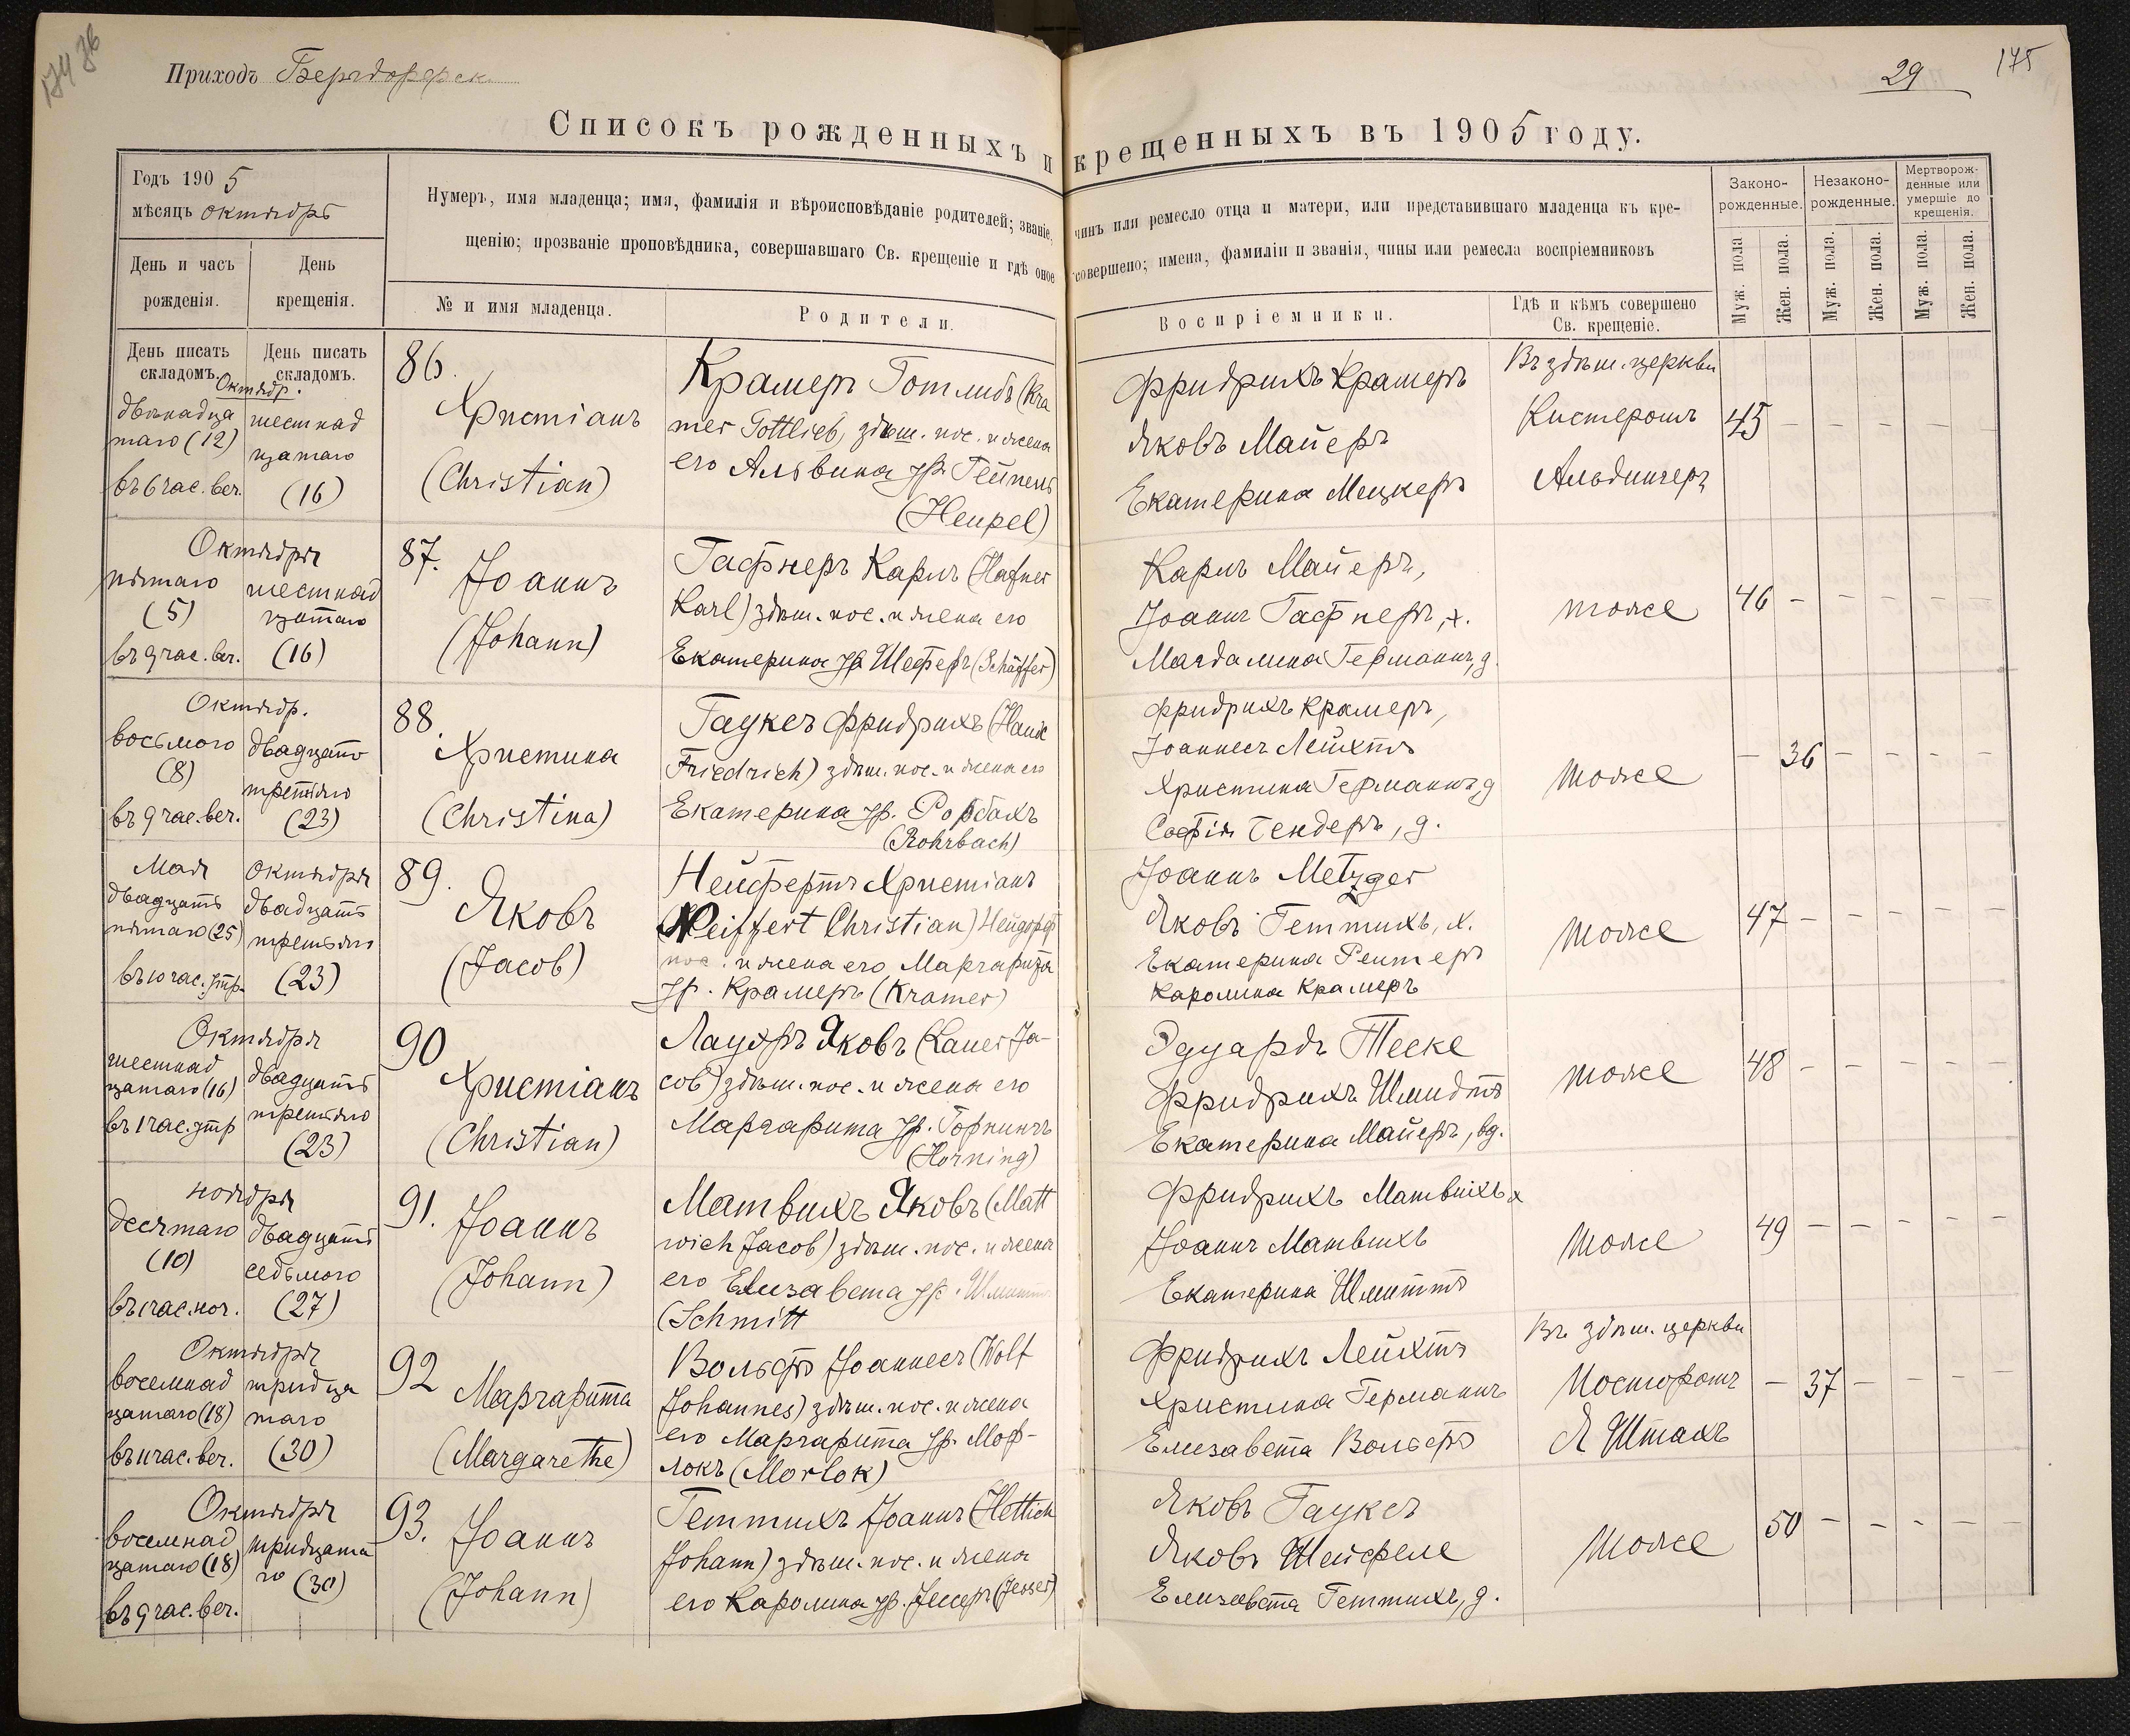 174 36
Приходъ Бергдорфск.
29
175
Списокъ рожденныхъ и крещенныхъ въ 1905 году.
Годъ 1905
мѣсяцъ октябрь
День и часъ рожденія.
День крещенія.
Нумеръ, имя младенца; имя, фамилія и вѣроисповѣданіе родителей; званіе, чинъ или ремесло отца и матери, или представившаго младенца къ кре-
щенію; прозваніе проповѣдника, совершавшаго Св. крещеніе и гдѣ оное совершено; имена, фамиліи и званія, чины или ремесла воспріемниковъ
№ и имя младенца.
Родители.
Воспріемники.
Гдѣ и кѣмъ совершено
Св. крещеніе.
Законо-
рожденные.
Незаконо-
рожденные.
Мертворож-
денные или
умершіе до
крещенія.
Муж. пола
Жен. пола.
Муж. пола.
Жен. пола.
Муж. пола.
Жен. пола.
День писать
складомъ.
День писать
складомъ.
Октябр.
двѣнадца
таго (12)
въ 6 час. веч.
шестнад
цатаго
(16)
86.
Христіанъ
(Christian)
Крамеръ Готлибъ (Kra
mer Gottlieb) здѣш. пос. и жена
его Альвина ур. Гейпель
(Heupel)
Фридрихъ Крамеръ
Яковъ Майеръ
Екатерина Мецкеръ
Въ здѣш. церкви
Кистеромъ
Альдингеръ
45 – – – – –
Октября
пятаго
(5)
въ 9 час. веч.
шестнад
цатаго
(16)
87.
Іоаннъ
(Johann)
Гафнеръ Карлъ (Hafner
Karl) здѣш. пос. и жена его
Екатерина ур. Шеферъ (Schäffer)
Карлъ Майеръ,
Іоаннъ Гафнеръ, х.
Магдалина Германнъ, д.
тоже
46 – – – – –
Октябр.
восьмого
(8)
въ 9 час. веч.
двадцать
третьяго
(23)
88.
Христина
(Christina)
Гаукъ Фридрихъ (Hauck
Friedrich) здѣш. пос. и жена его
Екатерина ур. Рорбахъ
(Rohrbach)
Фридрихъ Крамеръ,
Іоаннесъ Лейхтъ
Христина Германнъ, д
Софія Бендеръ, д.
тоже
– 36 – – – –
Мая
двадцать
пятаго (25)
въ 10 час. утр.
Октября
двадцать
третьяго
(23)
89.
Яковъ
(Jacob)
Нейфертъ Христіанъ
(Neiffert Christian) Нейдорф
пос. и жена его Маргарита
ур. Крамеръ (Kramer)
Іоаннъ Metzger
Яковъ Геттихъ, х.
Екатерина Рентеръ
Каролина Крамеръ
тоже
47 – – – – –
Октября
шестнад
цатаго (16)
въ 1 час. утр
двадцать
третьяго
(23)
90
Христіанъ
(Christian)
Лауэръ Яковъ (Lauer Ja-
cob) здѣш. пос. и жена его
Маргарита ур. Горнингъ
(Horning)
Эдуардъ Теске
Фридрихъ Шмидтъ
Екатерина Майеръ, вд.
тоже
48 – – – – –
ноября
десятаго
(10)
въ час. ноч.
двадцать
седьмого
(27)
91.
Іоаннъ
(Johann)
Матвихъ Яковъ (Matt
wich Jacob) здѣш. пос. и жена
его Елизавета ур. Шмиттъ
(Schmitt
Фридрихъ Матвихъ х
Іоаннъ Матвихъ
Екатерина Шмиттъ
тоже
49 – – – – –
Октября
восемнад
цатаго (18)
въ 11 час. веч.
тридца
таго
(30)
92
Маргарита
(Margarethe)
Вольфъ Іоаннесъ (Wolf
Johannes) здѣш. пос. и жена
его Маргарита ур. Мор-
локъ (Morlok)
Фридрихъ Лейхтъ
Христина Германнъ
Елизавета Вольфъ
Въ здѣш. церкви
Пасторомъ
Я Штахъ
– 37 – – – –
Октября
восемнад
цатаго (18)
въ 9 час. веч.
тридцата
го (30)
93.
Іоаннъ
(Johann)
Геттихъ Іоаннъ (Hettich
Johann) здѣш. пос. и жена
его Каролина ур. Іессеръ (Jesser)
Яковъ Гаукъ
Яковъ Шейфеле
Елизавета Геттихъ, д.
тоже
50 – – – – –